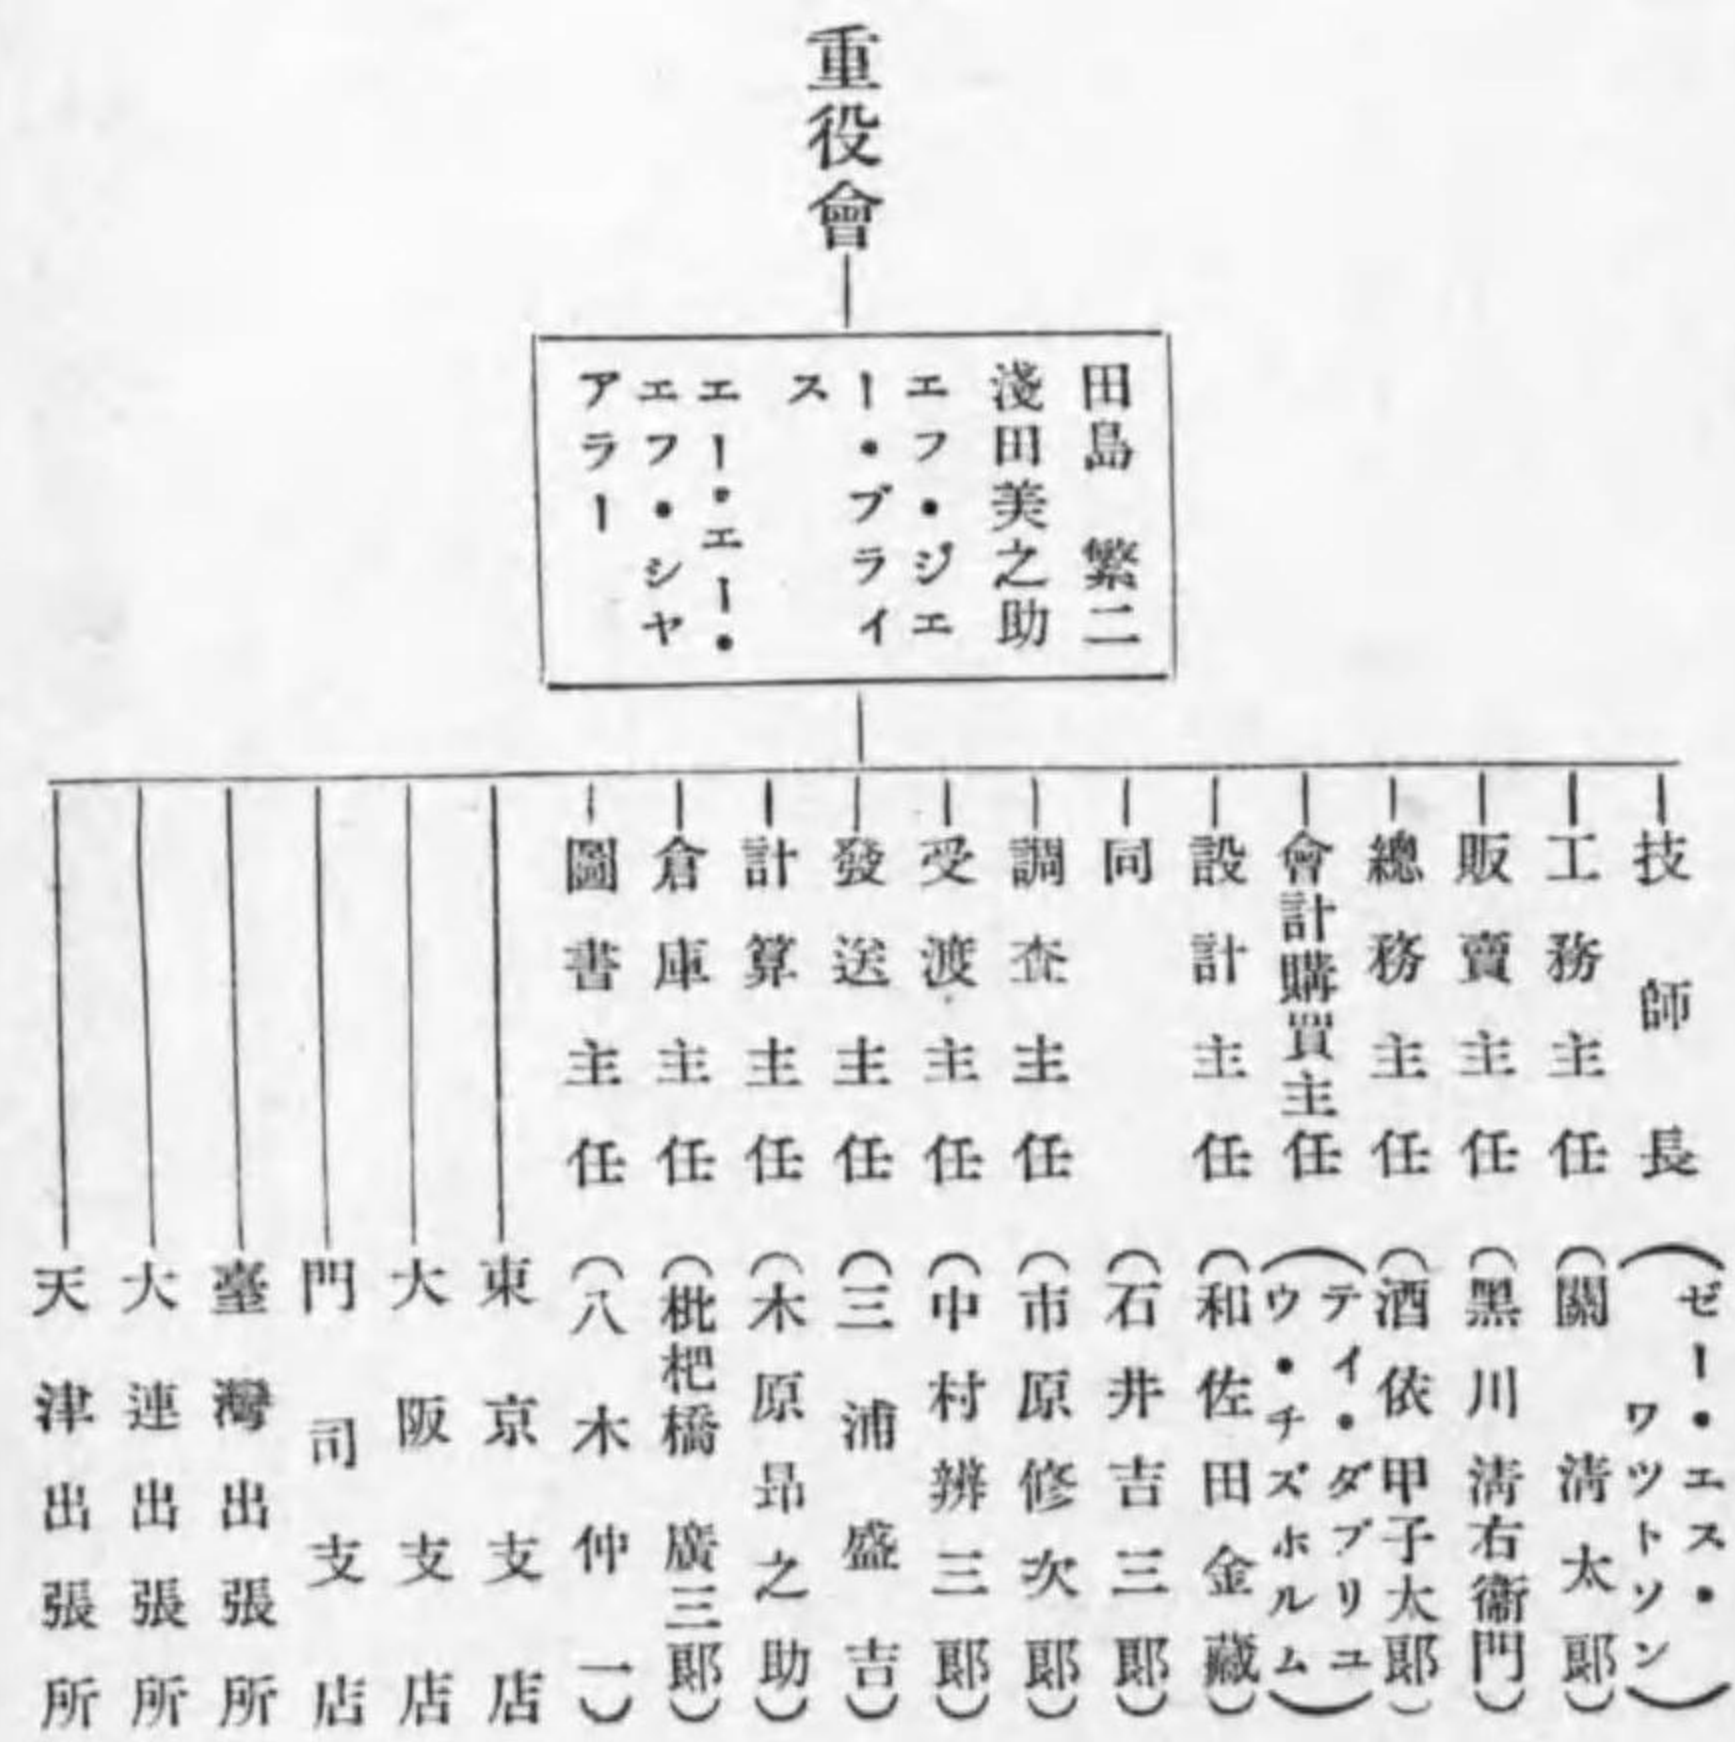 重役會
田島 繁二
淺田美之助
エフ・ジエ
ー・ブライ
ス
エー・エー・
エフ・シヤ
アラー
技師長(ゼー・エス・
ワツトソン)
工務主任(關 淸太郞)
販賣主任(黑川淸右衞門)
總務主任(酒依甲子太郞)
會計購買主任(テイ・ダブリユ
ウ・チズホルム)
設計主任(和佐田金藏)
同(石井吉三郞)
調査主任(市原修次郞)
受渡主任(中村辨三郞)
發送主任(三浦盛吉)
計算主任(木原昂之助)
倉庫主任(枇杷橋廣三郞)
圖書主任(八木仲一)
東京支店
大阪支店
門司支店
臺灣出張所
大連出張所
天津出張所